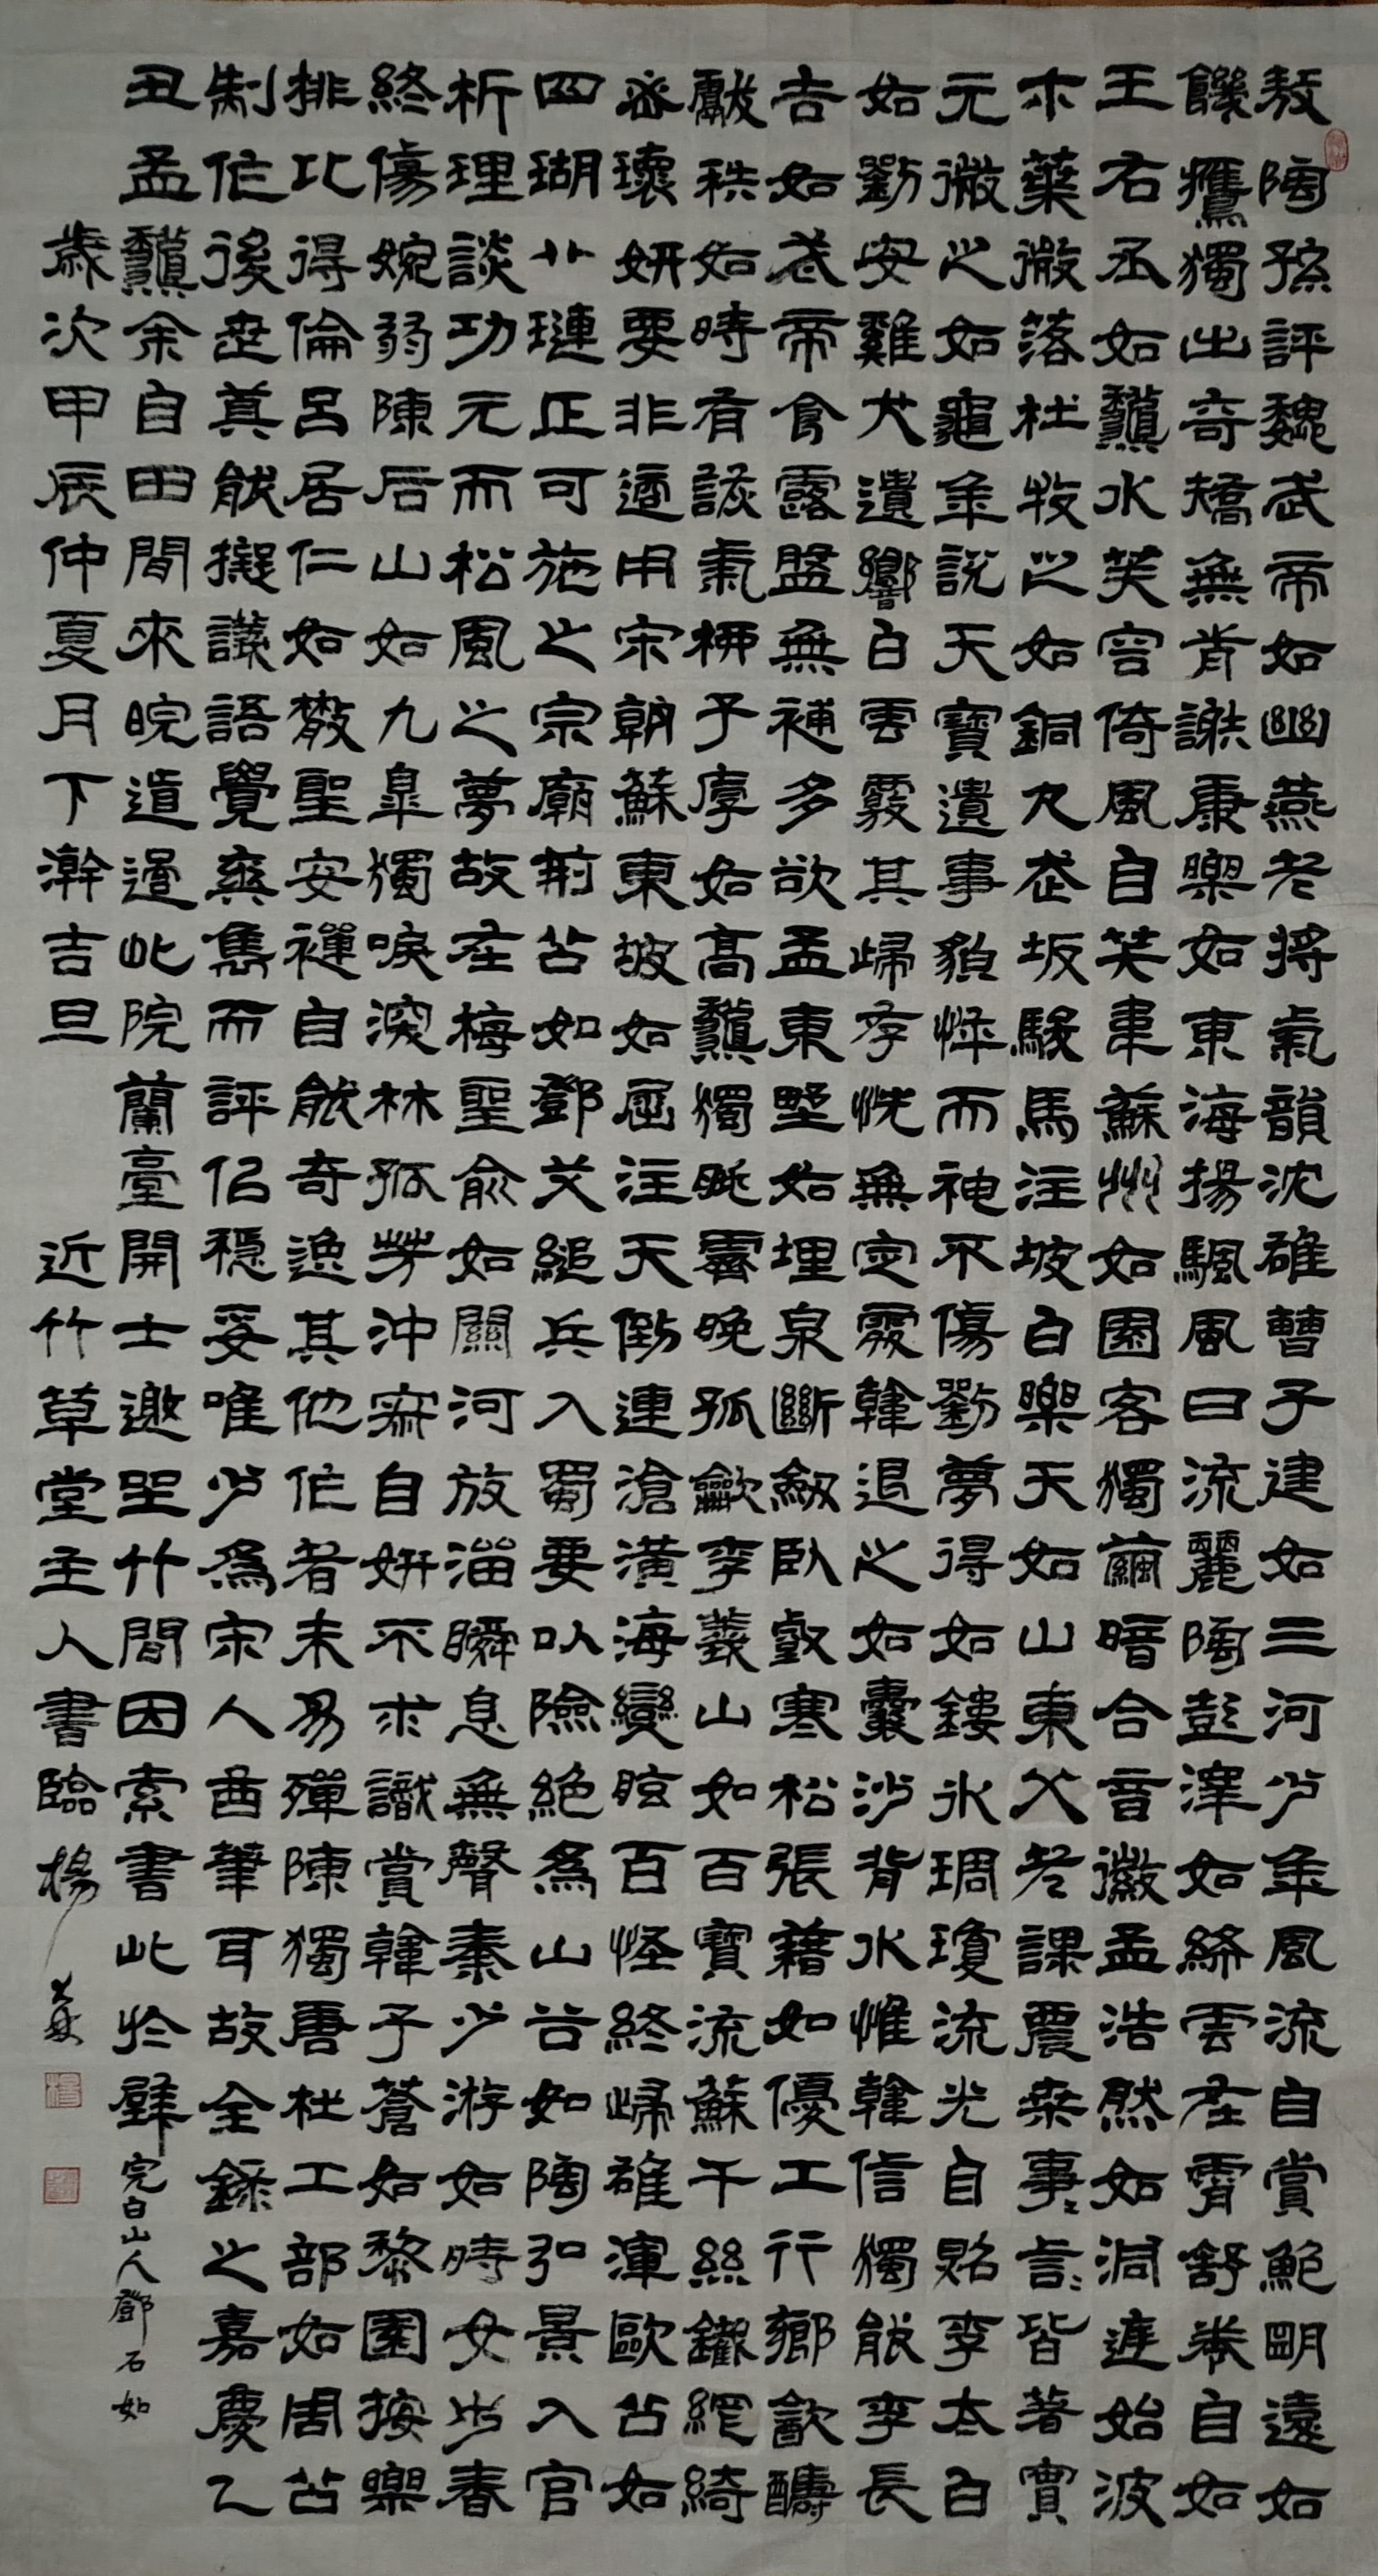 敖陶孫評魏武帝如幽燕老將氣韻沈雄曹子建如三河少年風流自賞鮑明遠如
饑鷹獨出奇矯無前謝康樂如東海揚颿風日流麗陶彭澤如絳雲在霄舒卷自如
王右丞如秋水芙蓉倚風自笑韋蘇州如園客獨繭暗合音徽孟浩然如洞庭始波
木葉微落杜牧之如銅丸走坂駿馬注坡白樂天如山東父老課農桑事事言言皆著實
元微之如龜年說天寶遺事貌悴而神不傷劉夢得如鏤冰琱瓊流光自照李太白
如劉安雞犬遺響白雲覈其歸存恍無定處韓退之如囊沙背水惟韓信獨能李長
吉如武帝食露盤無補多欲孟東野如埋泉斷劍臥壑寒松張籍如優工行鄉飲醻
獻秩如時有詼氣柳子厚如高秋獨眺霽晚孤吹李義山如百寶流蘇千絲鐵網綺
密瓌妍要非適用宋朝蘇東坡如屈注天倒連滄潢海變眩百怪終歸雄渾歐公如
四瑚八璉正可施之宗廟荊公如鄧艾縋兵入蜀要以險絕為山谷如陶弘景入官
析理談功元而松風之夢故在梅聖俞如關河放溜瞬息無聲秦少游如時女步春
終傷婉弱陳后山如九皋獨唳深林孤芳沖寂自妍不求識賞韓子蒼如黎園按樂
排比得倫呂居仁如散聖安禪自能奇逸其他作者未易殫陳獨唐杜工部如周公
制作後世莫能擬議語覺爽雋而評似穩妥唯少為宋人曲筆耳故全錄之嘉慶乙
丑孟秋余自田間來皖道過此院蘭臺開士邀坐竹間因索書此於壁完白山人鄧石如
歲次甲辰仲夏月下澣吉旦近竹草堂主人書臨楊